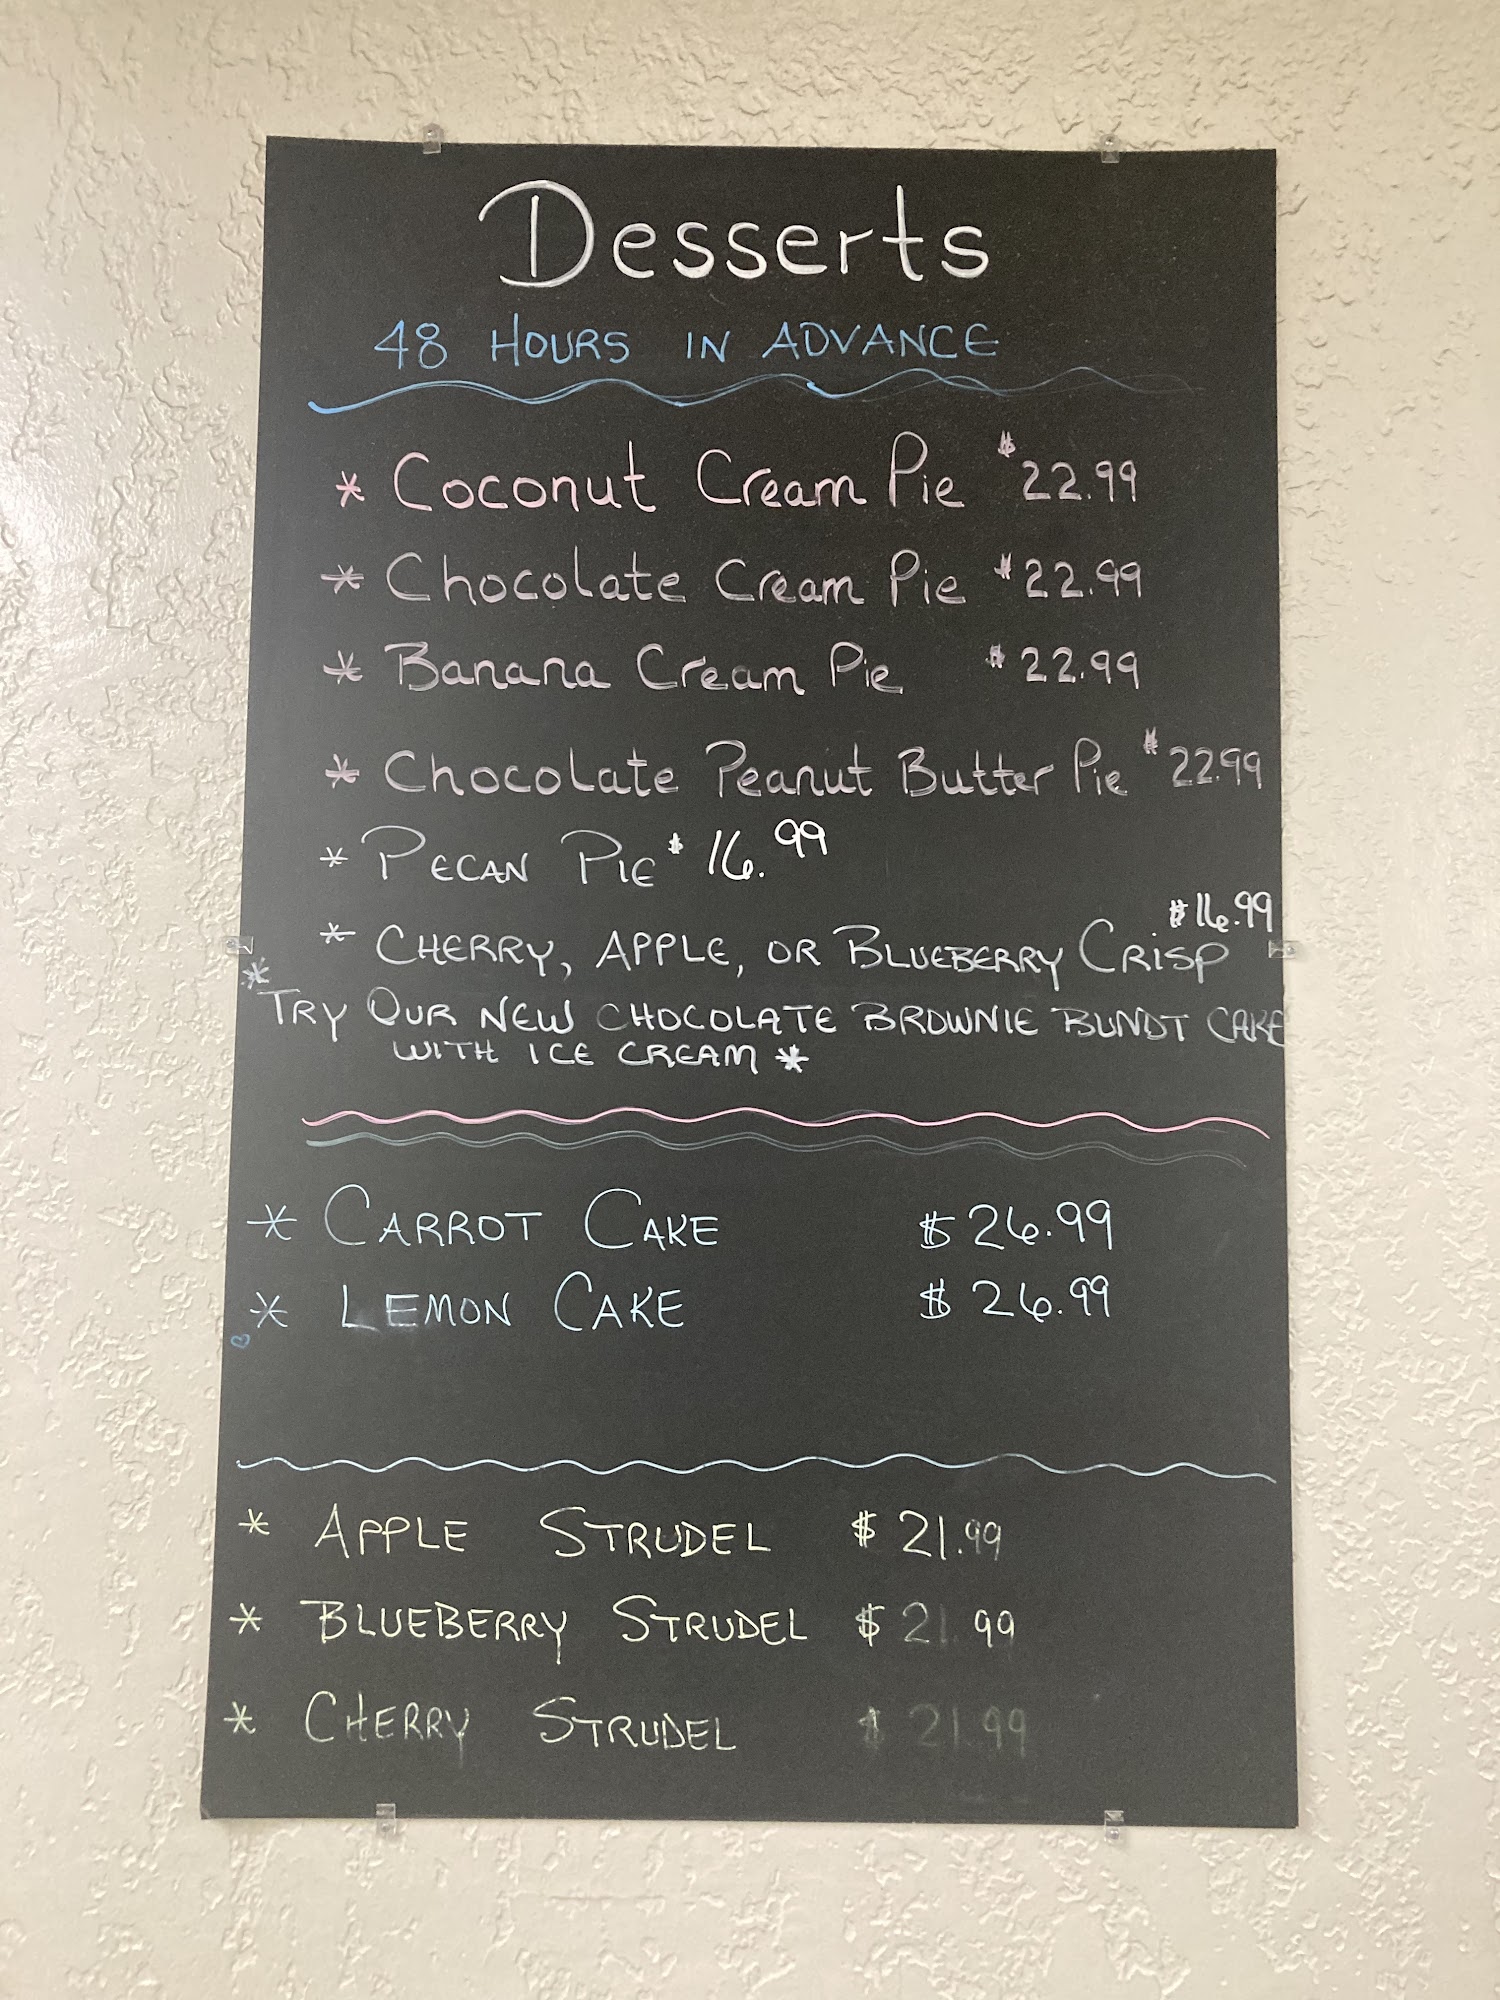 Desserts
48 HOURS IN ADVANCE
* Coconut Cream Pie $22.99
* Chocolate Cream Pie $22.99
* Banana Cream Pie $22.99
* Chocolate Peanut Butter Pie $22.99
* PECAN PIE $16.99
* CHERRY, APPLE, OR BLUEBERRY CRISP $16.99
* TRY OUR NEW CHOCOLATE BROWNIE BUNDT CAKE
WITH ICE CREAM *
* CARROT CAKE $26.99
* LEMON CAKE $26.99
* APPLE STRUDEL $21.99
* BLUEBERRY STRUDEL $21.99
* CHERRY STRUDEL $21.99